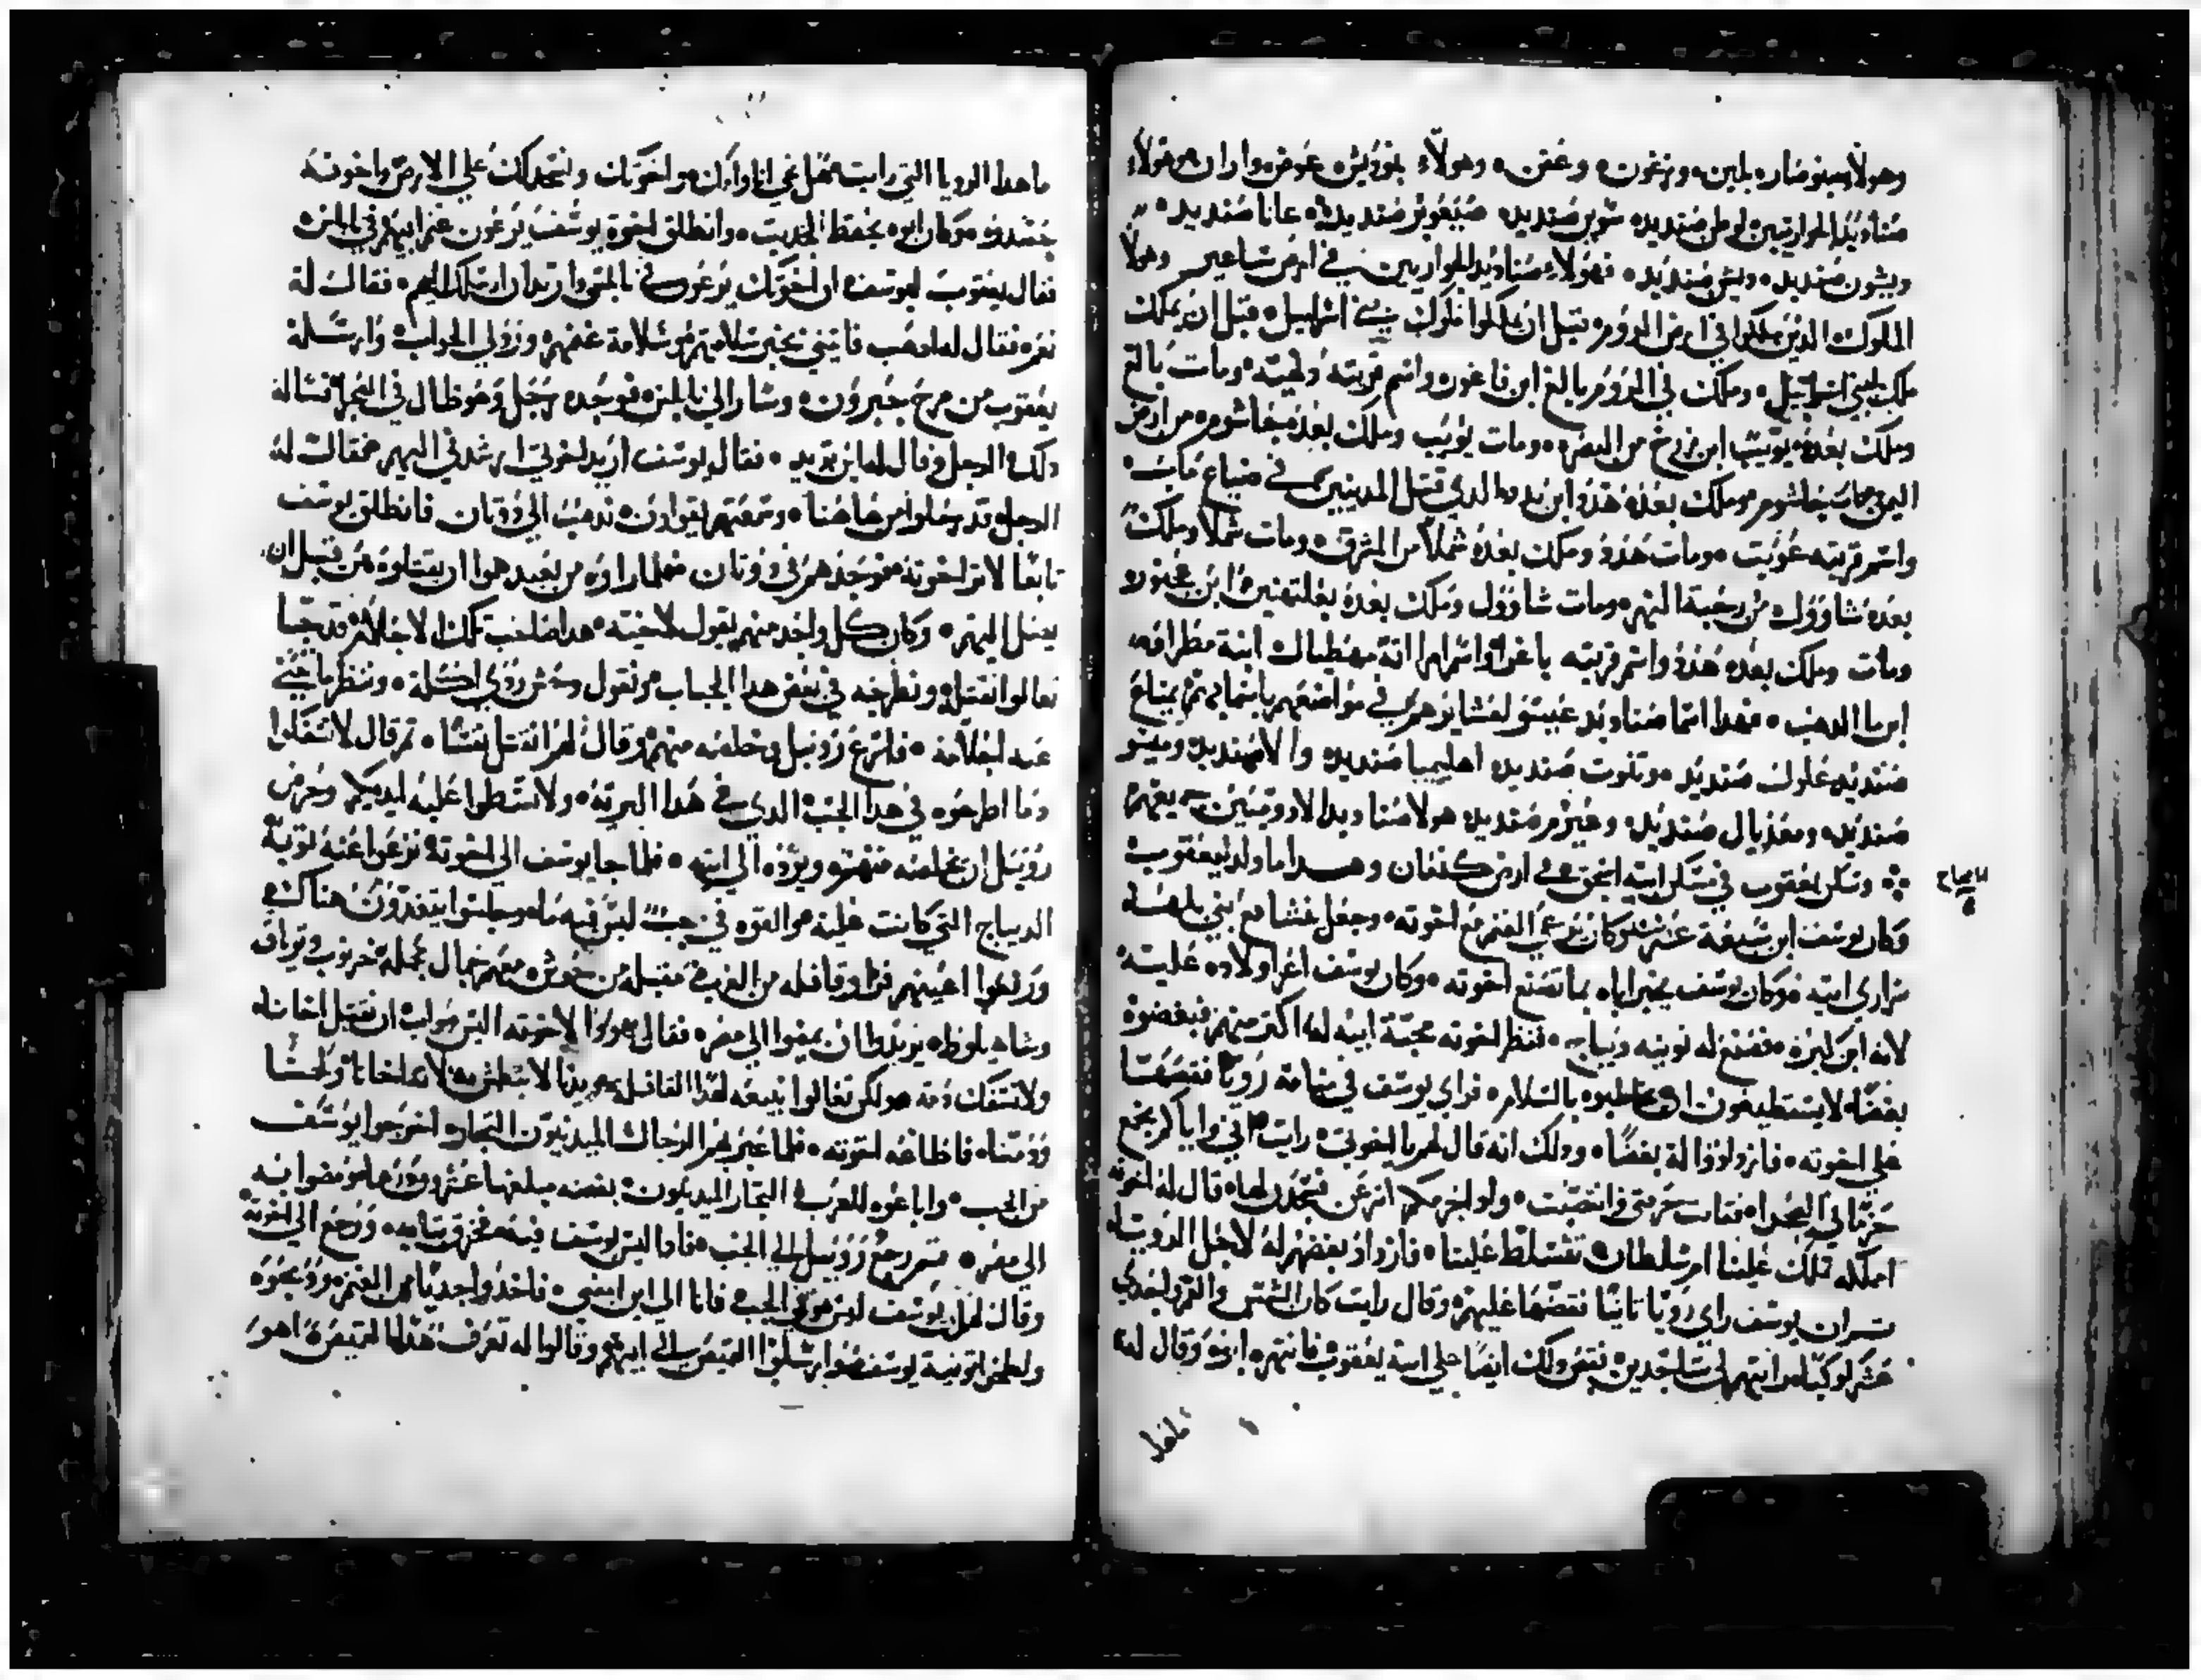 وهولاء بنو صار بلهن وزغون وعقن وهولاء بنو ديشن عوض واران هولاء
صناديد الحوارنيين لوطن صنديد شوبن صنديد صبعون صنديد عانا صنديد
ويشون صنديد ويشن صنديد فهولاء صناديد الحواريين في ارض ساعير وهولا
الملوك الذين ملكوا في ارض الروم قبل ان يملكوا ملوك بني اسراييل قبل ان يملك
ملك لبني اسراييل وملك في الروم بالغ ابن فاغور واسم قريته دلهبه ومات بالغ
وملك بعده يوبب ابن زرح من البصره ومات يوبب وملك بعده بخاشوم من ارض
اليمن ومات بخاشوم وملك بعده هدد ابن بدد الدي قتل المدينيين في ضياع ماب
واسم قريته عويت ومات هدد وملك بعده شملا من المشرق ومات شملا وملك
بعده شاوول من رحبة النهر ومات شاوول وملك بعده بعلتنين ابن عجنور
ومات وملك بعده هدد واسم قريته باغوا واسم امراته مهيطبال ابنة مطراقه
ابن ما الدهب فهدا اسما صناديد عيسو لعشايرهم في مواضعهم باسمايهم تمناع
صنديد علوان صنديد وتلوت صنديد اهليبا صنديد والا صنديد وفينو
صنديد ومغديال صنديد وعيرم صنديد هولا صناديد الادوميين
وسكن يعقوب في مسكن ابيه اسحق في ارض كنعان وهدا ما ولد ليعقوب
وكان يوسف ابن سبعة عشر سنه وكان يرعي الغنم مع اخوته وجعل غشا مع بني بلها
سراري ابيه وكان يوسف يخبر اباه بما تصنع اخوته وكان يوسف اعز اولاده عليه
لانه ابن كبره فصنع له توبيه ديباج فنظر اخوته محبة ابيه له اكتر منهم فبغضوه
بغضا لا يستطيعون ان يخاطبوه بالسلام فراي يوسف في منامه رويا فقصها
علي اخوته فازدادوا له بغضا ودلك انه قال لهم يا اخوتي رايت اني واياكم نجمع
حزما في الصحرا فقامت حزمتي وانتصبت ولو احزمكم انزعن فسجدن لها قال له اخوته
املكا تملك علينا ام سلطان تتسلط علينا فازداد بغضهم له لاجل الرويا
تم ان يوسف راي رويا تانيا فقصها عليهم وقال رايت كان الشمس والقمر واحدي
عشر كوكبا رايتهم لي ساجدين فقص دلك ايضا علي ابيه يعقوب فانتهره ابوه وقال له
ماهدا
ما هدا الرويا التي رايت هل نجي انا وامك واخوتك ونسجد لك علي الارض واخوته
حسدوه وكان ابوه يحفظ الحديت وانطلق اخوة يوسف يرعون غنم ابيهم في نابلس
فقال يعقوب ليوسف ان اخوتك يرعون في نابلس وانا اريد ان ارسلك اليهم فقال له
نعم فقال له ادهب فاتيني بخبر سلامتهم وسلامة غنمهم ورد لي الجواب وارسله
يعقوب من مرج حبرون وسار الي نابلس فوجده رجل وهو ظال في الصحرا فساله
دلك الرجل وقال له اين تريد فقال يوسف اريد اخوتي ارشدني اليهم فقال له
الرجل قد رحلوا من هاهنا وسمعتهم يقولون ندهب الي دوتان فانطلق يوسف
تابعا لاتر اخوته فوجدهم في دوتان فلما راوه من بعيد هموا ان يقتلوه من قبل ان
يصل اليهم وكان كل واحد منهم يقول لاخيه هدا صاحب تلك الاحلام قد جا
تعالوا نقتله ونطرحه في بعض هدا الجباب ونقول وحش ردي اكله وننظر ما يغني
عنه احلامه فاسرع روبيل بتخلصه منهم وقال لهم لا نقتل نفسا تم قال لا تسفكوا
دما اطرحوه في هدا الجب الدي في هدا البريه ولا تسطوا عليه ايديكم وحرض
روبيل ان يخلصه منهم ويرده الي ابيه فلما جا يوسف الي اخوته نزعوا عنه توبه
الديباج التي كانت عليه والقوه في جب ليس فيه ما وجلسوا يتغدون هناك
ورفعوا اعينهم فراو قافله من العرب مقبله من جرش معهم جمال محمله خرنوب وترياق
وشاه بلوط يريدوا ان يمضوا الي مصر فقال يهودا لاخوته اليس صواب ان نقتل اخانا
ولا نسفك دمه ولكن تعالوا نبيعه لهدا القافله وايدينا لا تبطش به لانه اخانا ولحمنا
ودمنا فاطاعه اخوته فلما عبر بهم الرجال المدينيون التجار اخرجوا يوسف
من الجب واباعوه للعرب التجار المدينيون بفضه مبلغها عشرون درهما ومضوا به
الي مصر تم رجع روبيل الي الجب فادا ليس يوسف فيه فخرق تيابه ورجع الي اخوته
وقال لهم ان يوسف ليس هو في الجب فانا الي اين امضي فاخدوا جديا من الغنم ودبحوه
ولطخوا توبية يوسف وارسلوا القميص الي ابيهم وقالوا له تعرف هدا القميص اهو